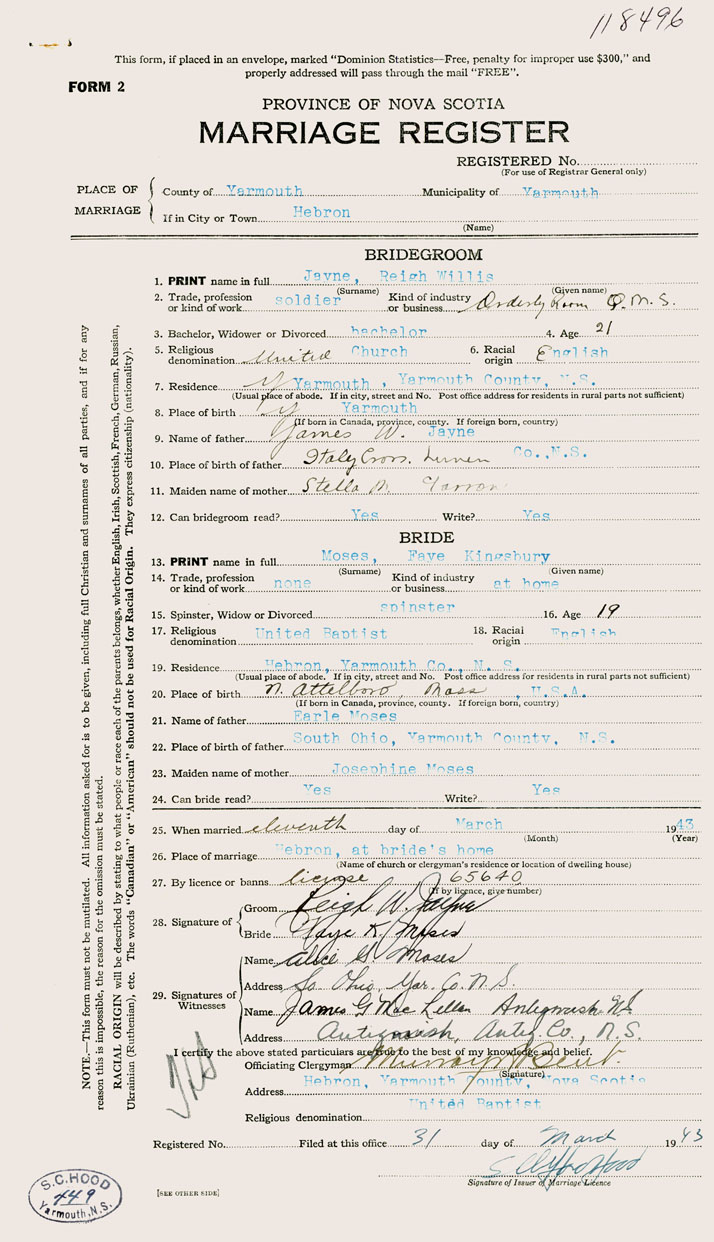 118496
This form, if placed in an envelope, marked "Dominion Statistics—Free, penalty for improper use $300," and
properly addressed will pass through the mail "FREE".
FORM 2
PROVINCE OF NOVA SCOTIA
MARRIAGE REGISTER
REGISTERED No.
(For use of Registrar General only)
PLACE OF MARRIAGE
County of Yarmouth Municipality of Yarmouth
If in City or Town Hebron
(Name)
BRIDEGROOM
1. PRINT name in full Jayne, Reigh Willis
(Surname) (Given name)
2. Trade, profession or kind of work soldier Kind of industry or business Orderly Room Q.M.S.
3. Bachelor, Widower or Divorced bachelor 4. Age 21
5. Religious denomination United Church 6. Racial origin English
7. Residence Yarmouth, Yarmouth County, N.S.
(Usual place of abode. If in city, street and No. Post office address for residents in rural parts not sufficient)
8. Place of birth Yarmouth
(If born in Canada, province, county. If foreign born, country)
9. Name of father James W. Jayne
10. Place of birth of father Italy Cross, Lunen Co., N.S.
11. Maiden name of mother Stella M.
12. Can bridegroom read? Yes Write? Yes
BRIDE
13. PRINT name in full Moses, Faye Kingsbury
(Surname) (Given name)
14. Trade, profession or kind of work none Kind of industry or business at home
15. Spinster, Widow or Divorced spinster 16. Age 19
17. Religious denomination United Baptist 18. Racial origin English
19. Residence Hebron, Yarmouth Co., N. S.
(Usual place of abode. If in city, street and No. Post office address for residents in rural parts not sufficient)
20. Place of birth N. Attelboro, Mass, U.S.A.
(If born in Canada, province, county. If foreign born, country)
21. Name of father Earle Moses
22. Place of birth of father South Ohio, Yarmouth County, N.S.
23. Maiden name of mother Josephine Moses
24. Can bride read? Yes Write? Yes
25. When married eleventh day of March 1943
(Month) (Year)
26. Place of marriage Hebron, at bride's home
(Name of church or clergyman's residence or location of dwelling house)
27. By licence or banns license 65640
(If by licence, give number)
28. Signature of
Groom Reigh W. Jayne
Bride Faye K. Moses
29. Signatures of Witnesses
Name Alice G. Moses
Address So. Ohio, Yar. Co. N.S.
Name James G MacLellan Antigonish N.S.
Address Antigonish, Antig. Co., N.S.
I certify the above stated particulars are true to the best of my knowledge and belief.
Officiating Clergyman Murray Bent.
(Signature)
Address Hebron, Yarmouth County, Nova Scotia
Religious denomination United Baptist
Registered No. Filed at this office 31 day of March 1943
Signature of Issuer of Marriage Licence
[SEE OTHER SIDE]
S.C. HOOD
449
Yarmouth, N.S.
NOTE.—This form must not be mutilated. All information asked for is to be given, including full Christian and surnames of all parties, and if for any
reason this is impossible, the reason for the omission must be stated.
RACIAL ORIGIN will be described by stating to what people or race each of the parents belongs, whether English, Irish, Scottish, French, German, Russian,
Ukrainian (Ruthenian), etc. The words "Canadian" or "American" should not be used for Racial Origin. They express citizenship (nationality).